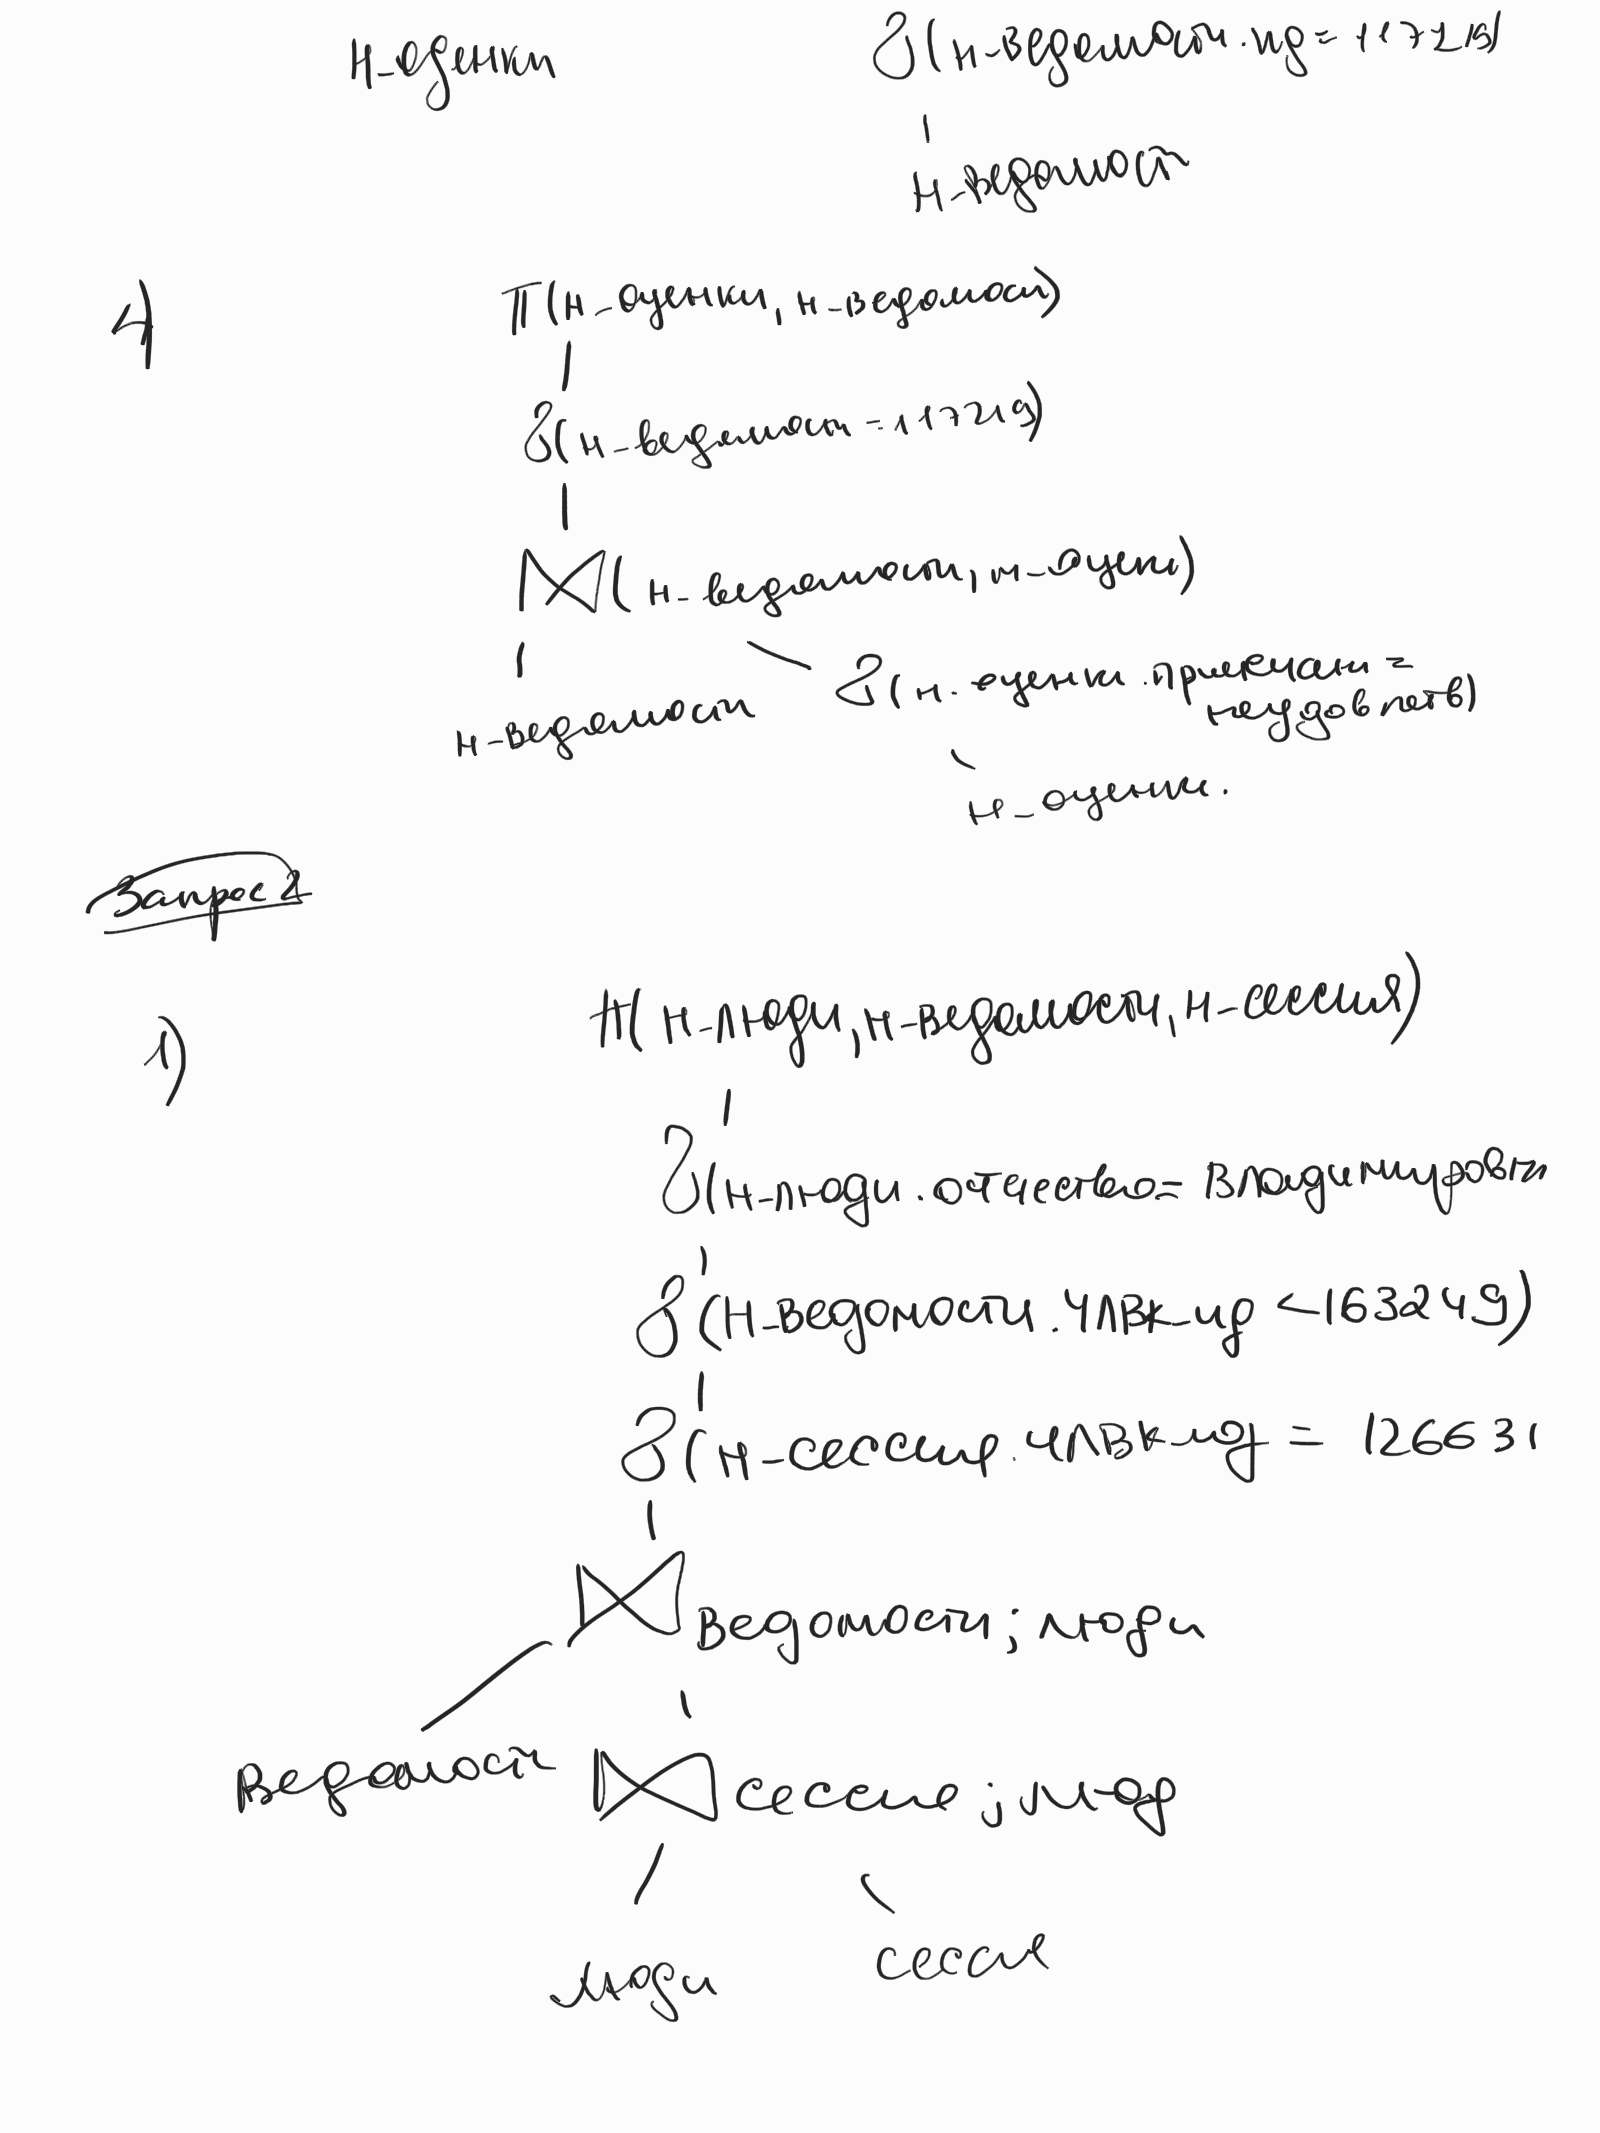 н-оценки
σ(н-ведомости.ид = 117219)
н-ведомост
4)
π(н-оценки, н-ведомост)
σ(н-ведомост = 117219)
⋈(н-ведомости, н-оценк)
н-ведомости
σ(н-оценки.примечани =
неудовлетв)
н-оценки.
Запрос 2
1)
π(н-люди, н-ведомости, н-сессия)
σ(н-люди.отчество = Владимирови
σ(н-ведомости.ЧЛВК-ид < 163249)
σ(н-сессия.ЧЛВК-ид = 126631
⋈ ведомости; люди
ведомост
⋈ сессия; люд
люди
сессия